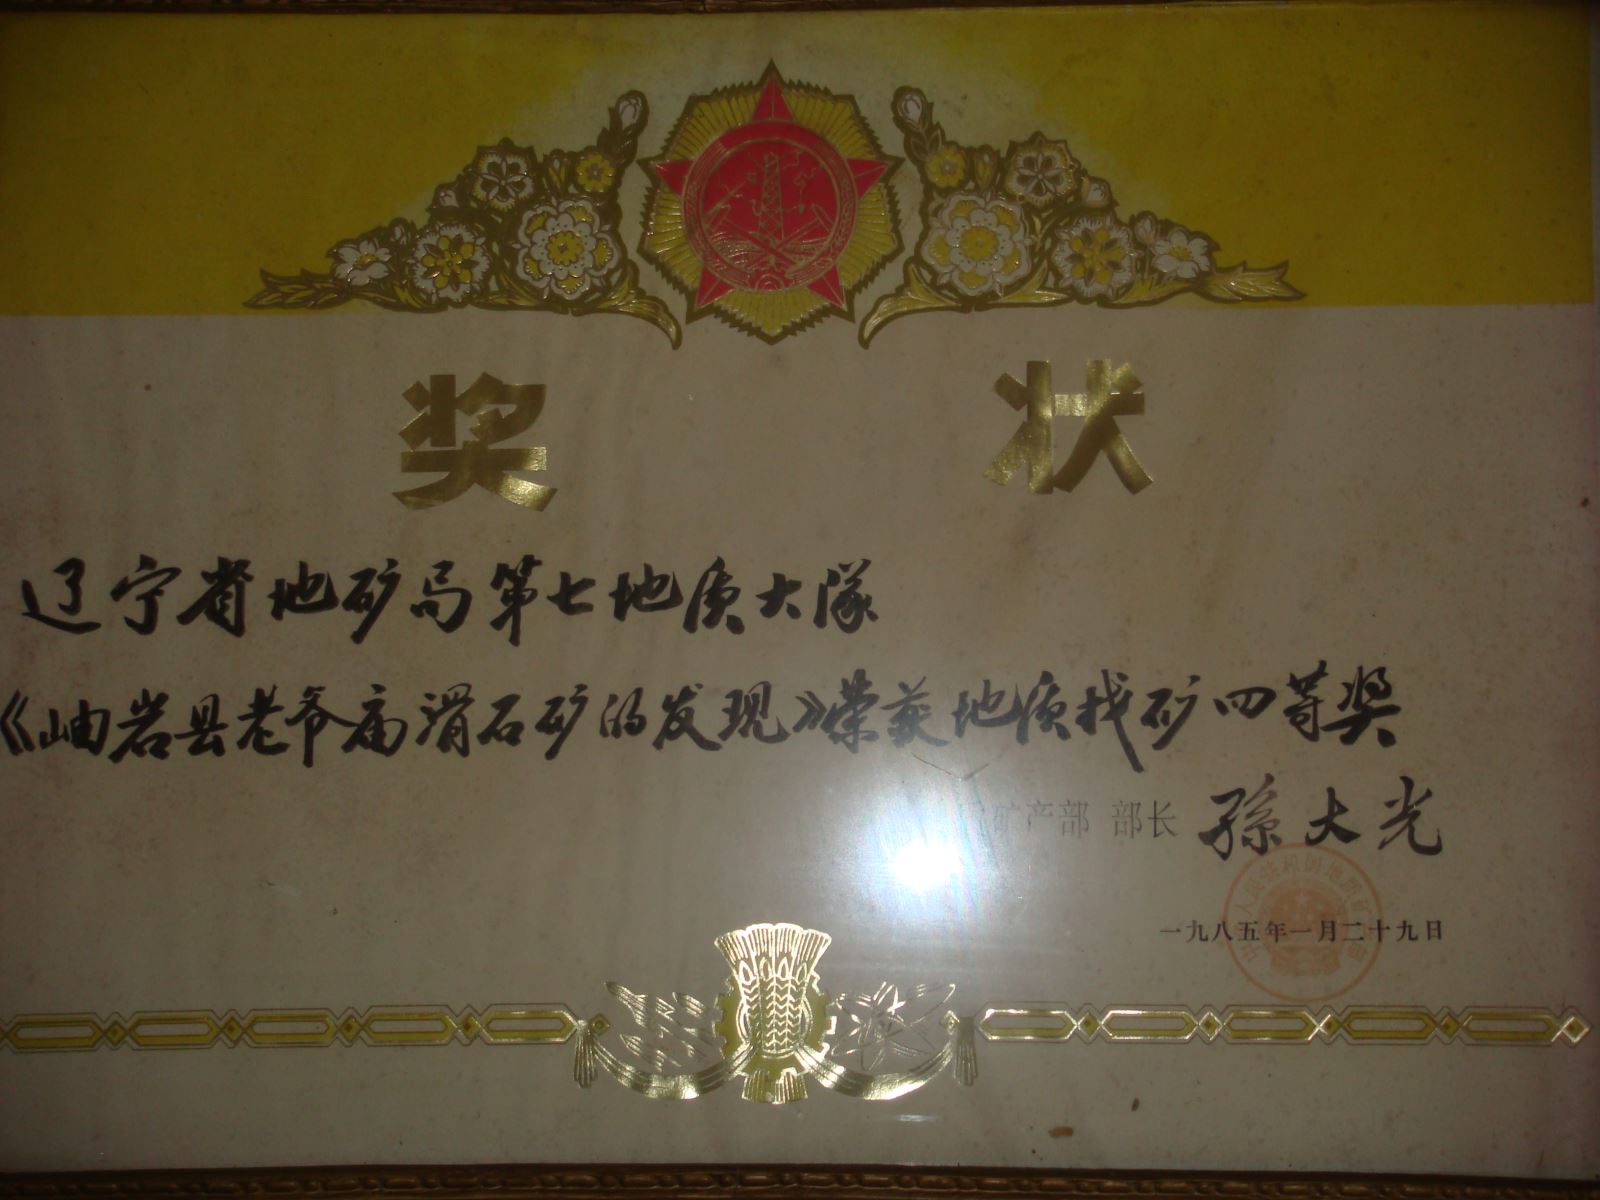 奖状
辽宁省地矿局第七地质大队
《岫岩县老爷庙滑石矿的发现》荣获地质找矿四等奖
矿产部 部长 孫大光
人民共和国地质矿
一九八五年一月二十九日